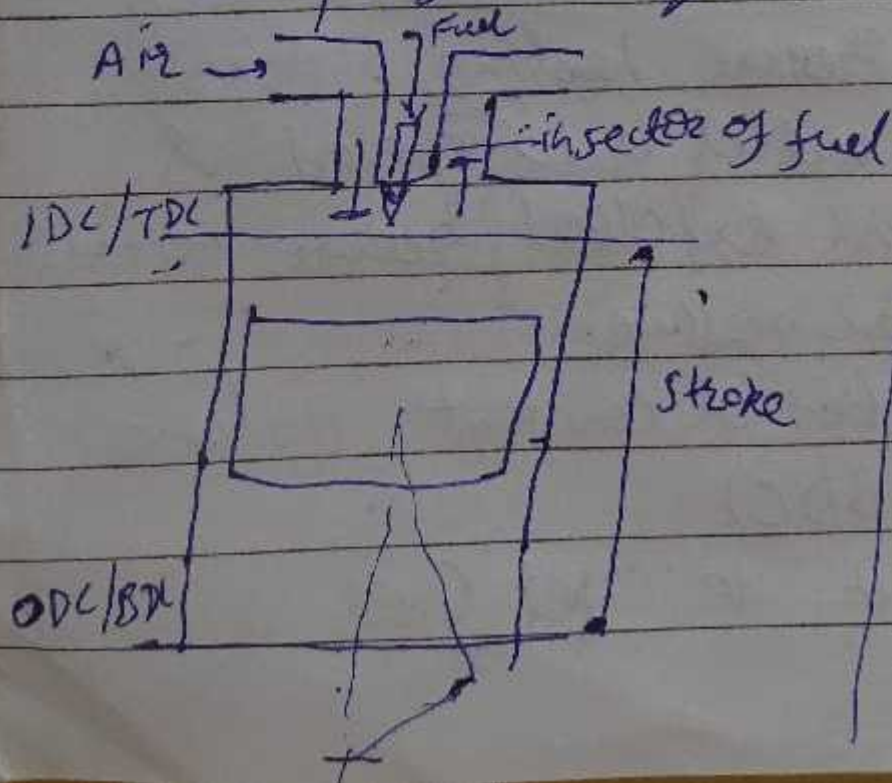 Fuel
Air →
insector of fuel
IDC/TDC
Stroke
ODC/BDC